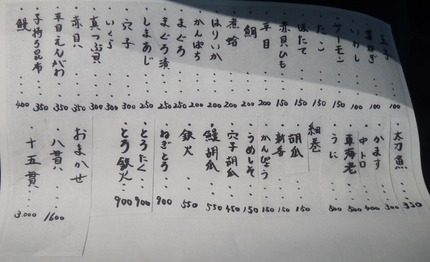 玉子 100
芽ねぎ 100
いわし 100
サーモン 150
たこ 150
ほたて 150
赤貝ひも 150
平目 200
鯛 200
煮蛤 200
はりいか 200
かんぱち 200
まぐろ 250
まぐろ漬 250
しまあじ 250
穴子 300
いくら 300
真つぶ貝 300
赤貝 350
平目えんがわ 350
子持ち昆布 350
鰻 400
太刀魚 350
かます 300
中トロ 400
車海老 500
うに 500
細巻
胡瓜 150
新香 150
かんぴょう 150
うめしそ 150
穴子胡瓜 450
鰻胡瓜 550
鉄火 550
ねぎとろ 900
とろたく 900
とろ鉄火 900
おまかせ
八貫 1600
十五貫 3,000